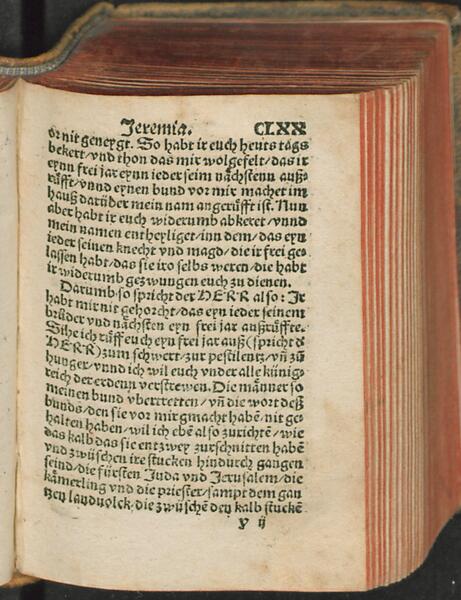 Jeremia. CLXX
or nit geneygt. So habt ir euch heuts tags
bekert/vnd thon das mir wolgefelt/das ir
eynn frei jar eynn ieder seim nächstenn auß
růfft/vnnd eynen bund vor mir machet im
hauß darüber mein nam angerůfft ist. Nun
aber habt ir euch widerumb abkeret/vnnd
mein namen entheyliget/inn dem/das eyn
ieder seinen knecht vnd magd/die ir frei ge-
lassen habt/das sie iro selbs weren/die habt
ir widerumb gezwungen euch zu dienen.
Darumb so spricht der HERR also: Ir
habt mir nit gehorcht/das eyn ieder seinem
brůder vnd nächsten eyn frei jar außrůffte.
Sihe ich růff euch eyn frei jar auß (spricht d
HERR) zum schwert/zur pestilentz/vn̄ zů
hunger/vnnd ich wil euch vnder alle künig-
reich der erdenn verstrewen. Die männer so
meinen bund vbertretten/vn̄ die wort deß
bunds/den sie vor mir gmacht habē nit ge-
halten haben/wil ich ebē also zurichtē/wie
das kalb das sie entzwey zurschnitten habē
vnd zwüschen ire stucken hindurch gangen
seind/die fürsten Juda vnd Jerusalem/die
kämerling vnd die priester/sampt dem gan
tzen landuolck/die zwüschē den kalb stuckē
y ij